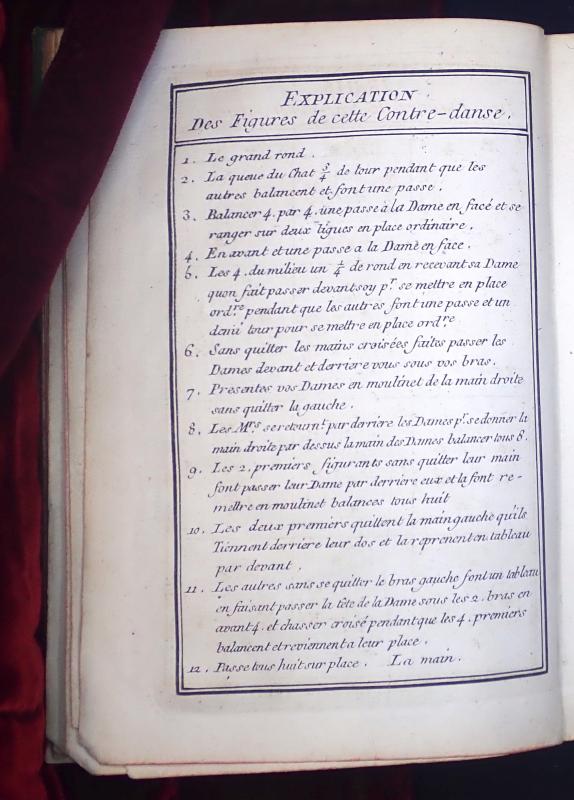 EXPLICATION
Des Figures de cette Contre-danse.
1. Le grand rond.
2. La queue du Chat 3/4 de tour pendant que les
autres balancent et font une passe.
3. Balancer 4. par 4. une passe à la Dame en facé et se
ranger sur deux lignes en place ordinaire.
4. En avant et une passe a la Dame en face.
5. Les 4. du milieu un 1/4 de rond en recevant sa Dame
quon fait passer devant soy pr. se mettre en place
ordre pendant que les autres font une passe et un
demi tour pour se mettre en place ordre
6. Sans quitter les mains croisées faites passer les
Dames devant et derriere vous sous vos bras.
7. Presentes vos Dames en moulinet de la main droite
sans quitter la gauche.
8. Les Mrs. se retournt par derriere les Dames pr. se donner la
main droite par dessus la main des Dames balancer tous 8.
9. Les 2. premiers figurants sans quitter leur main
font passer leur Dame par derriere eux et la font re-
mettre en moulinet balances tous huit
10. Les deux premiers quittent la main gauche qu'ils
Tiennent derriere leur dos et la reprenent en tableau
par devant.
11. Les autres sans se quitter le bras gauche font un tableau
en faisant passer la tête de la Dame sous les 2. bras en
avant 4. et chasser croisé pendant que les 4. premiers
balancent et reviennent a leur place.
12. Passe tous huit sur place. La main.